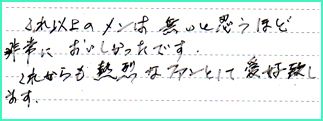 これ以上のメンは無いと思うほど
非常においしかったです。
これからも熱烈なファンとして愛好致し
ます。